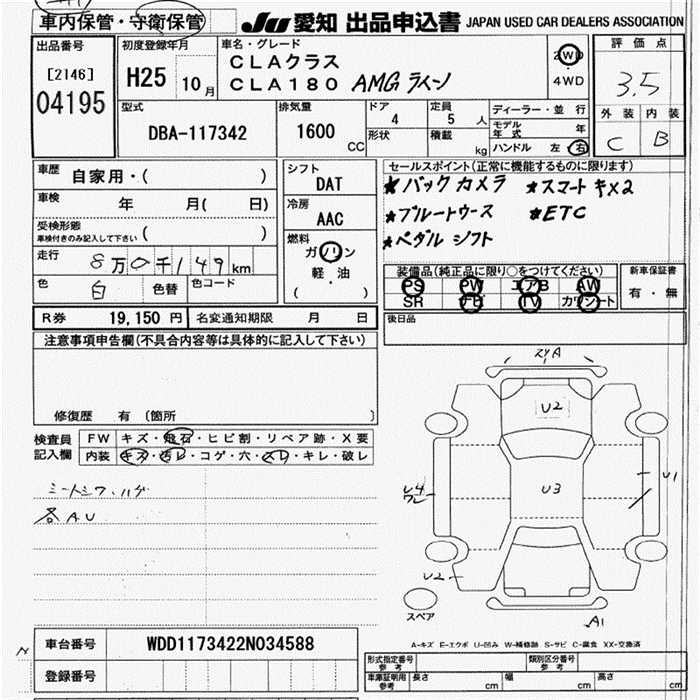 車内保管・守衛保管
JU 愛知 出品申込書 JAPAN USED CAR DEALERS ASSOCIATION
出品番号
[2146]
04195
初度登録年月
H25 10月
車名・グレード
CLAクラス
CLA180 AMG ライン
2WD
4WD
評価点
3.5
外装 内装
C B
型式
DBA-117342
排気量
1600 CC
ドア
4
形状
定員
5 人
積載
kg
ディーラー・並行
モデル年式 年
ハンドル 左 右
車歴
自家用・( )
車検
年 月( 日)
受検形態
車検付きのみ記入して下さい ( )
走行
8万0千149km
色
白
色替
色コード
シフト
DAT
冷房
AAC
燃料
ガソリン
軽・油
( )
セールスポイント(正常に機能するものに限ります)
★バックカメラ ★スマートキx2
★ブルートゥース ★ETC
★ペダルシフト
装備品(純正品に限り○をつけてください)
PS PW エアB AW
SR TV カワシート
新車保証書
有・無
後日品
R券 19,150円 名変通知期限 月 日
注意事項申告欄(不具合内容等は具体的に記入して下さい)
修復歴 有 〔箇所
検査員記入欄
FW キズ・飛石・ヒビ割・リペア跡・X要
内装 キズ・汚レ・コゲ・穴・スレ・キレ・破レ
シートシワ・ハゲ
各AU
U2
U3
U4
U1
U2
A1
スペア
A-キズ E-エクボ U-凹み W-補修跡 S-サビ C-腐食 XX-交換済
車台番号
WDD1173422N034588
登録番号
形式指定番号
参考
類別区分番号
参考
車庫証明用
参考
長さ cm 幅 cm 高さ cm